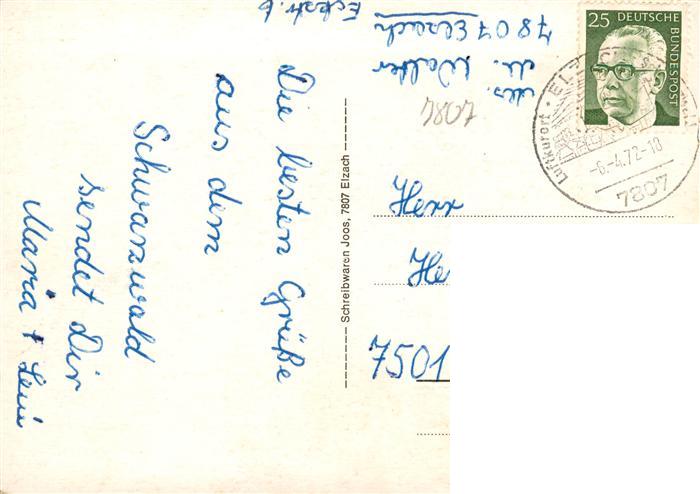 Die besten Grüße
aus dem
Schwarzwald
sendet Dir
Maria + Leni
Schreibwaren Joos, 7807 Elzach
Abs. Walter
7807 Elzach
Eckstr. 6
4084
25 DEUTSCHE
BUNDESPOST
Luftkurort · ELZACH
-6.-4.72-18
7807
Herr
He
7501